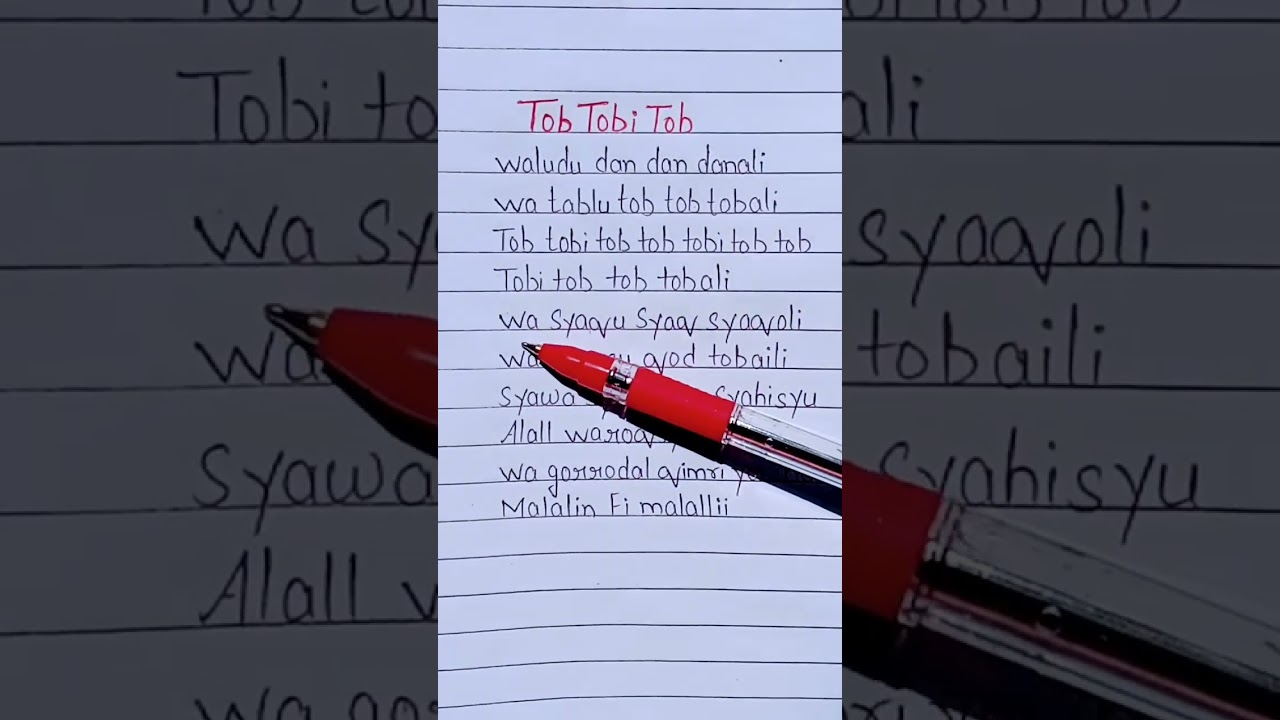 Tob Tobi Tob
waludu dan dan danali
wa tablu tob tob tobali
Tob tobi tob tob tobi tob tob
Tobi tob tob tobali
wa syaqu syaq syaqoli
wa qod tobaili
syawa syahisyu
Alall waroq
wa gorrodal qimri
Malalin Fi malallii